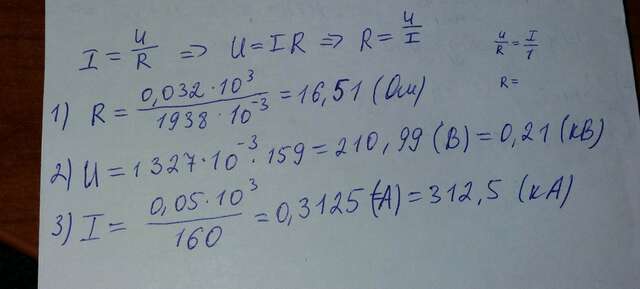 I = U/R => U = IR => R = U/I
U/R = I/1
R =
1) R = 0,032·10³ / 1938·10⁻³ = 16,51 (Ом)
2) U = 1327·10⁻³·159 = 210,99 (В) = 0,21 (кВ)
3) I = 0,05·10³ / 160 = 0,3125 (А) = 312,5 (кА)